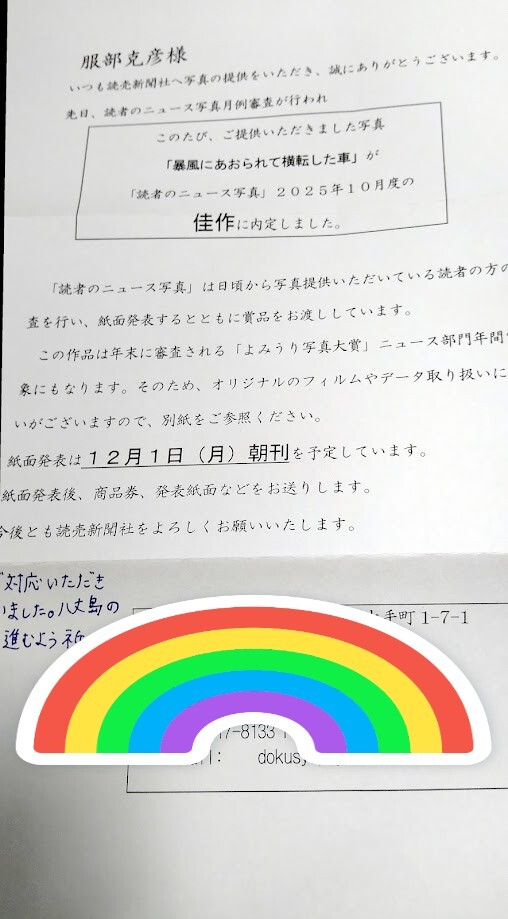 服部克彦様
いつも読売新聞社へ写真の提供をいただき、誠にありがとうございます。
先日、読者のニュース写真月例審査が行われ
このたび、ご提供いただきました写真
「暴風にあおられて横転した車」が
「読者のニュース写真」2025年10月度の
佳作に内定しました。
「読者のニュース写真」は日頃から写真提供いただいている読者の方の
査を行い、紙面発表するとともに賞品をお渡ししています。
この作品は年末に審査される「よみうり写真大賞」ニュース部門年間
象にもなります。そのため、オリジナルのフィルムやデータ取り扱いに
いがございますので、別紙をご参照ください。
紙面発表は12月1日（月）朝刊を予定しています。
紙面発表後、商品券、発表紙面などをお送りします。
今後とも読売新聞社をよろしくお願いいたします。
対応いただき
いました。八丈島の
進むよう祈
手町1-7-1
17-8133
dokusy